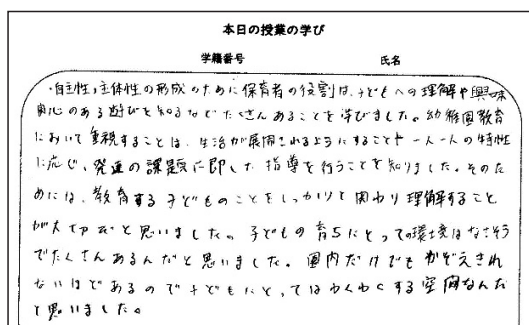 本日の授業の学び
学籍番号 氏名
・自主性,主体性の形成のために保育者の役割は、子どもへの理解や興味
関心のある遊びを知るなどたくさんあることを学びました。幼稚園教育
において重視することは、生活が展開されるようにすることや一人一人の特性
に応じ、発達の課題に即した指導を行うことを知りました。そのた
めには、教育する子どものことをしっかりと関わり理解すること
が大切だと思いました。子どもの育ちにとっての環境は
でたくさんあるんだと思いました。園内だけでもかぞえきれ
ないほどあるので子どもにとってはわくわくする空間なんだ
と思いました。